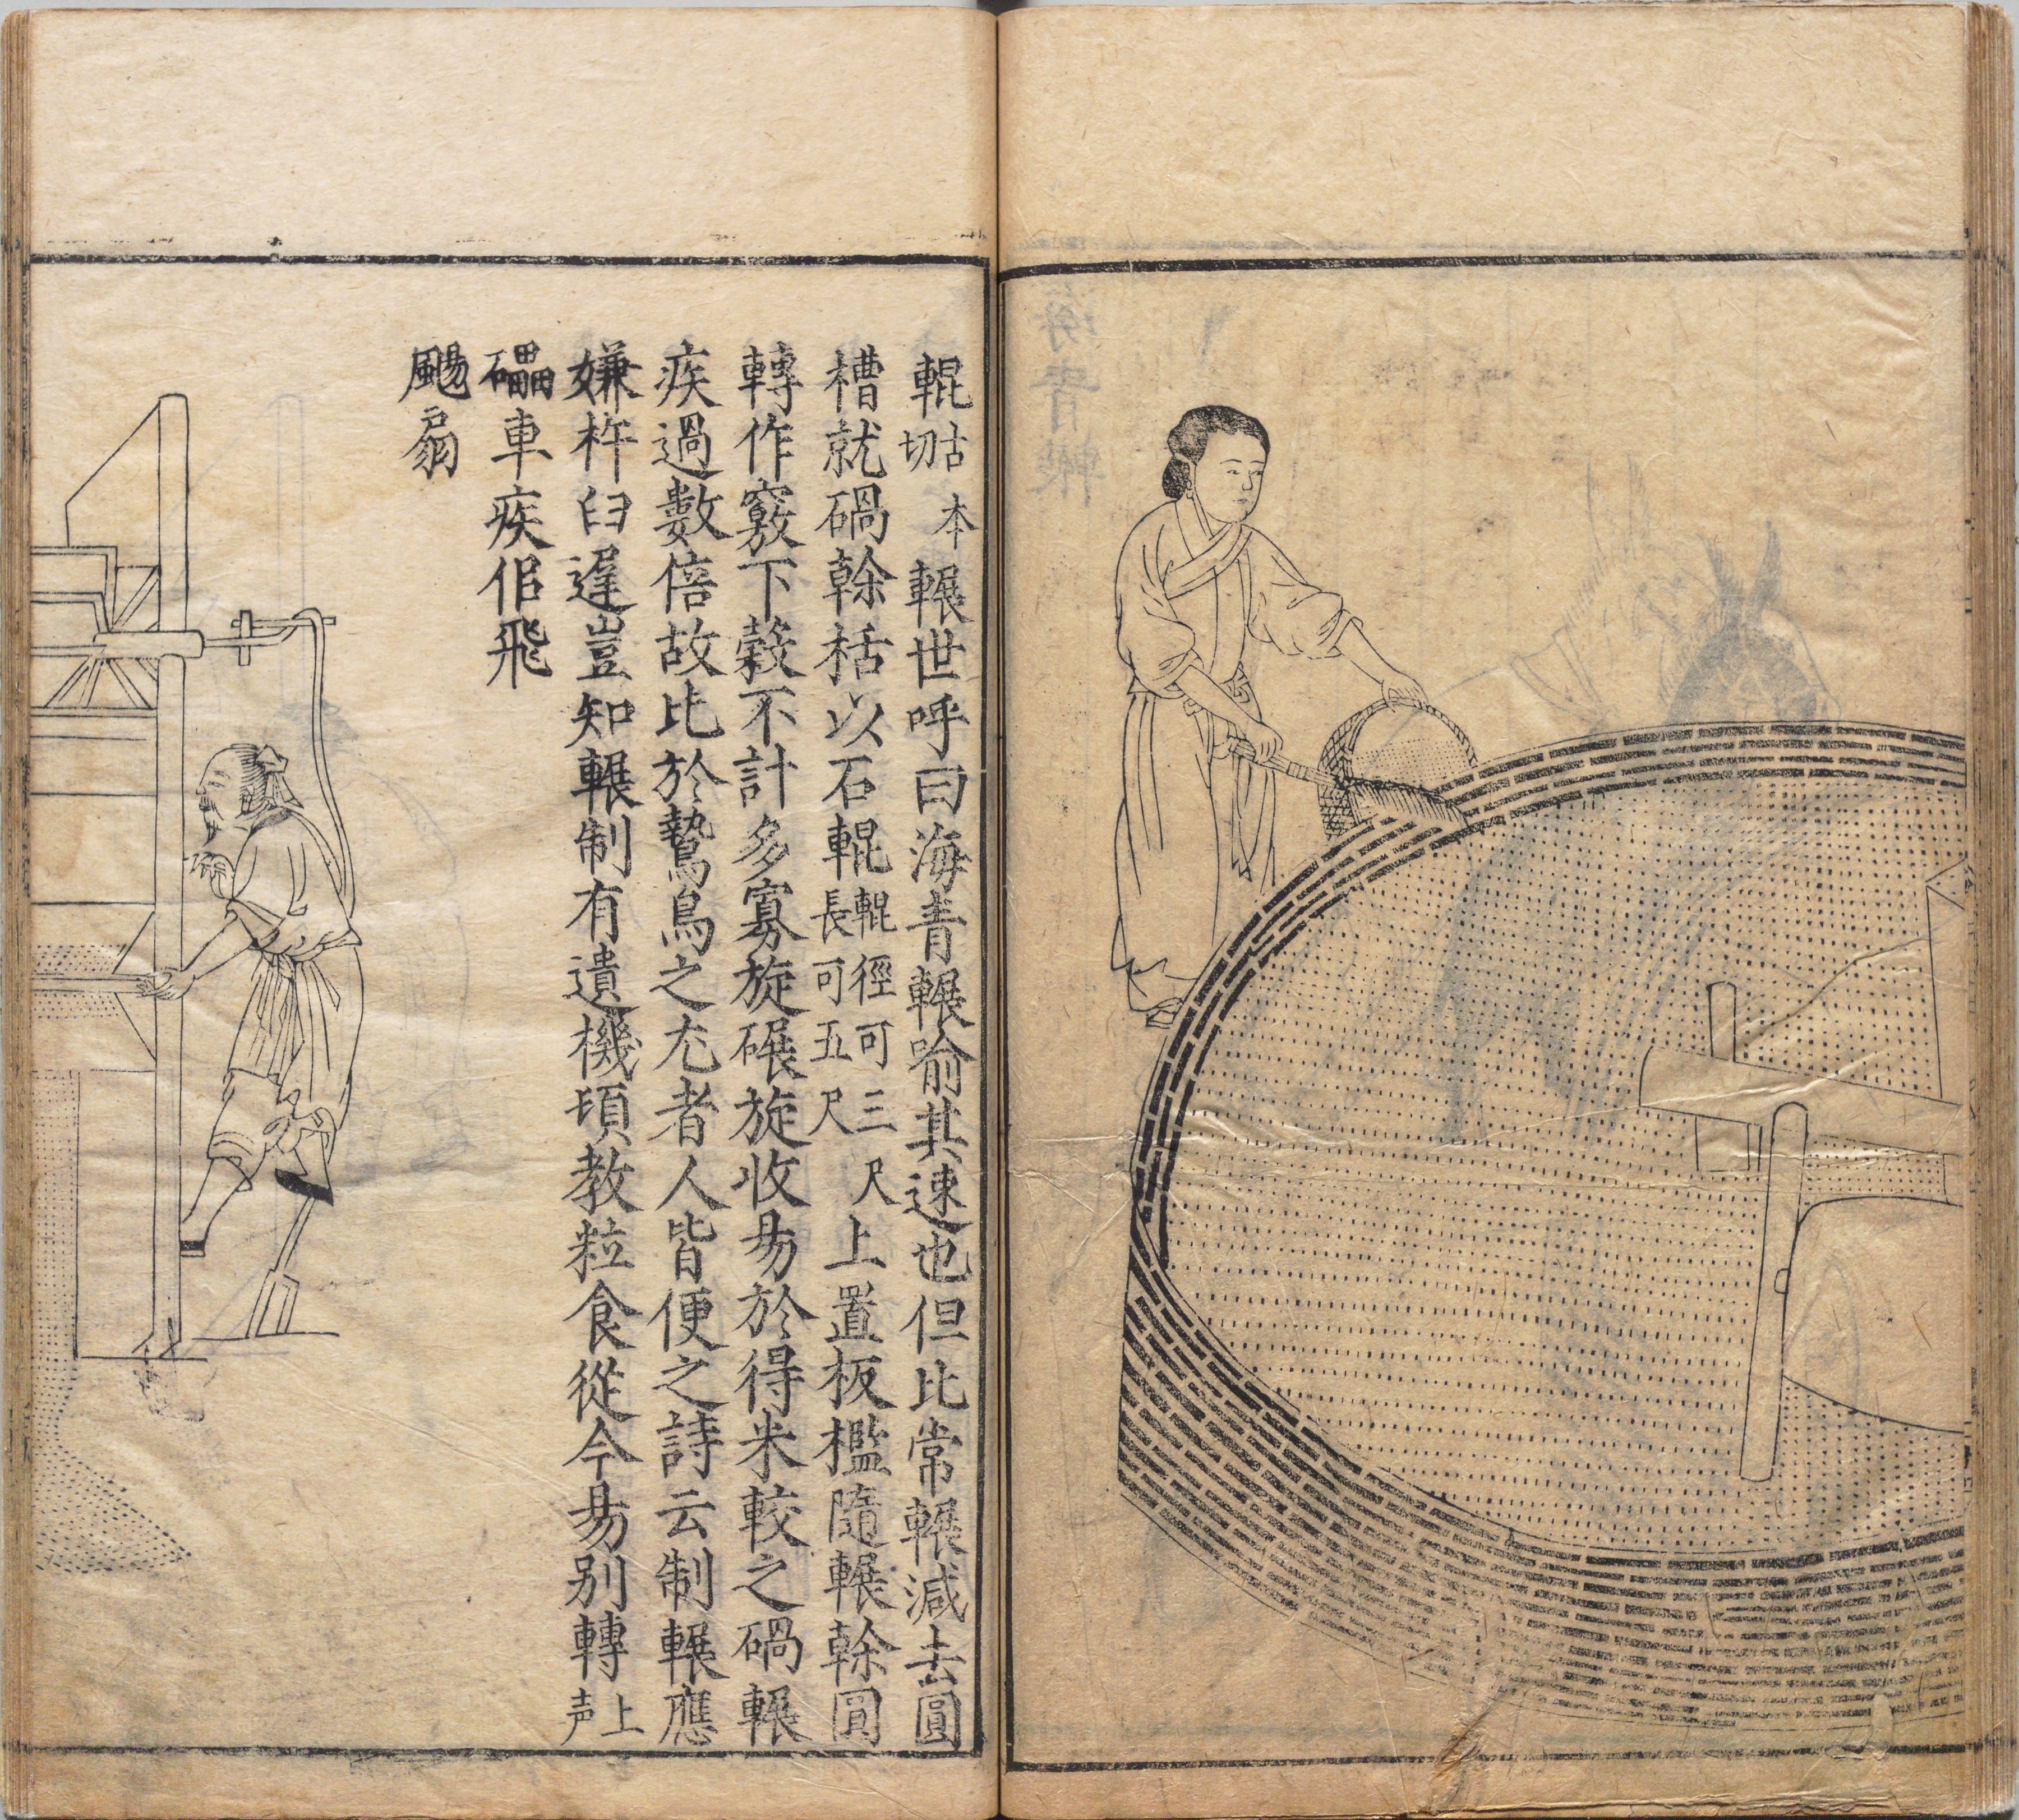 輥古本切輾世呼曰海青輾喻其速也但比常輾減去圓
槽就碢榦栝以石輥輥徑可三尺長可五尺上置板檻隨輾榦圓
轉作竅下榖不計多寡旋碾旋收易於得米較之碢輾
疾過數倍故比於鷙鳥之尤者人皆便之詩云制輾應
嫌杵臼遲豈知輾制有遺機頃教粒食從今易別轉上声
礧車疾佀飛
颺扇